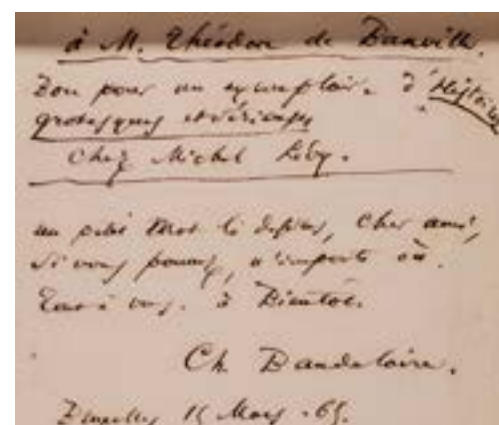 à M. Théodore de Banville.
Bon pour un exemplaire d'Histoires
grotesques et sérieuses
chez Michel Lévy.
un petit mot là dessus, cher ami,
si vous pouvez, n'importe où.
Tout à vous. à Bientôt.
Ch. Baudelaire.
Bruxelles 15 Mars. 65.